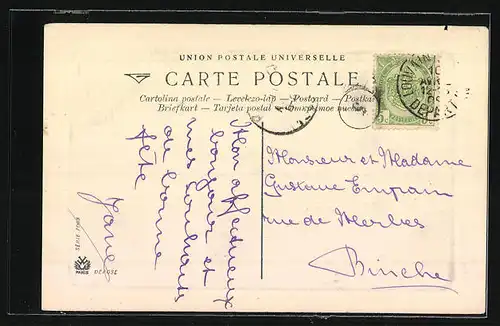 UNION POSTALE UNIVERSELLE
CARTE POSTALE
Cartolina postale — Levelezo-láp — Postcard — Postkar
Briefkart — Tarjeta postal —
Mon affectueux
bonjour et
mes souhaits
de bonne
fête
Jane
Monsieur et Madame
Gustave Empain
rue de Merbes
Binche
PARIS
DÉPOSÉ